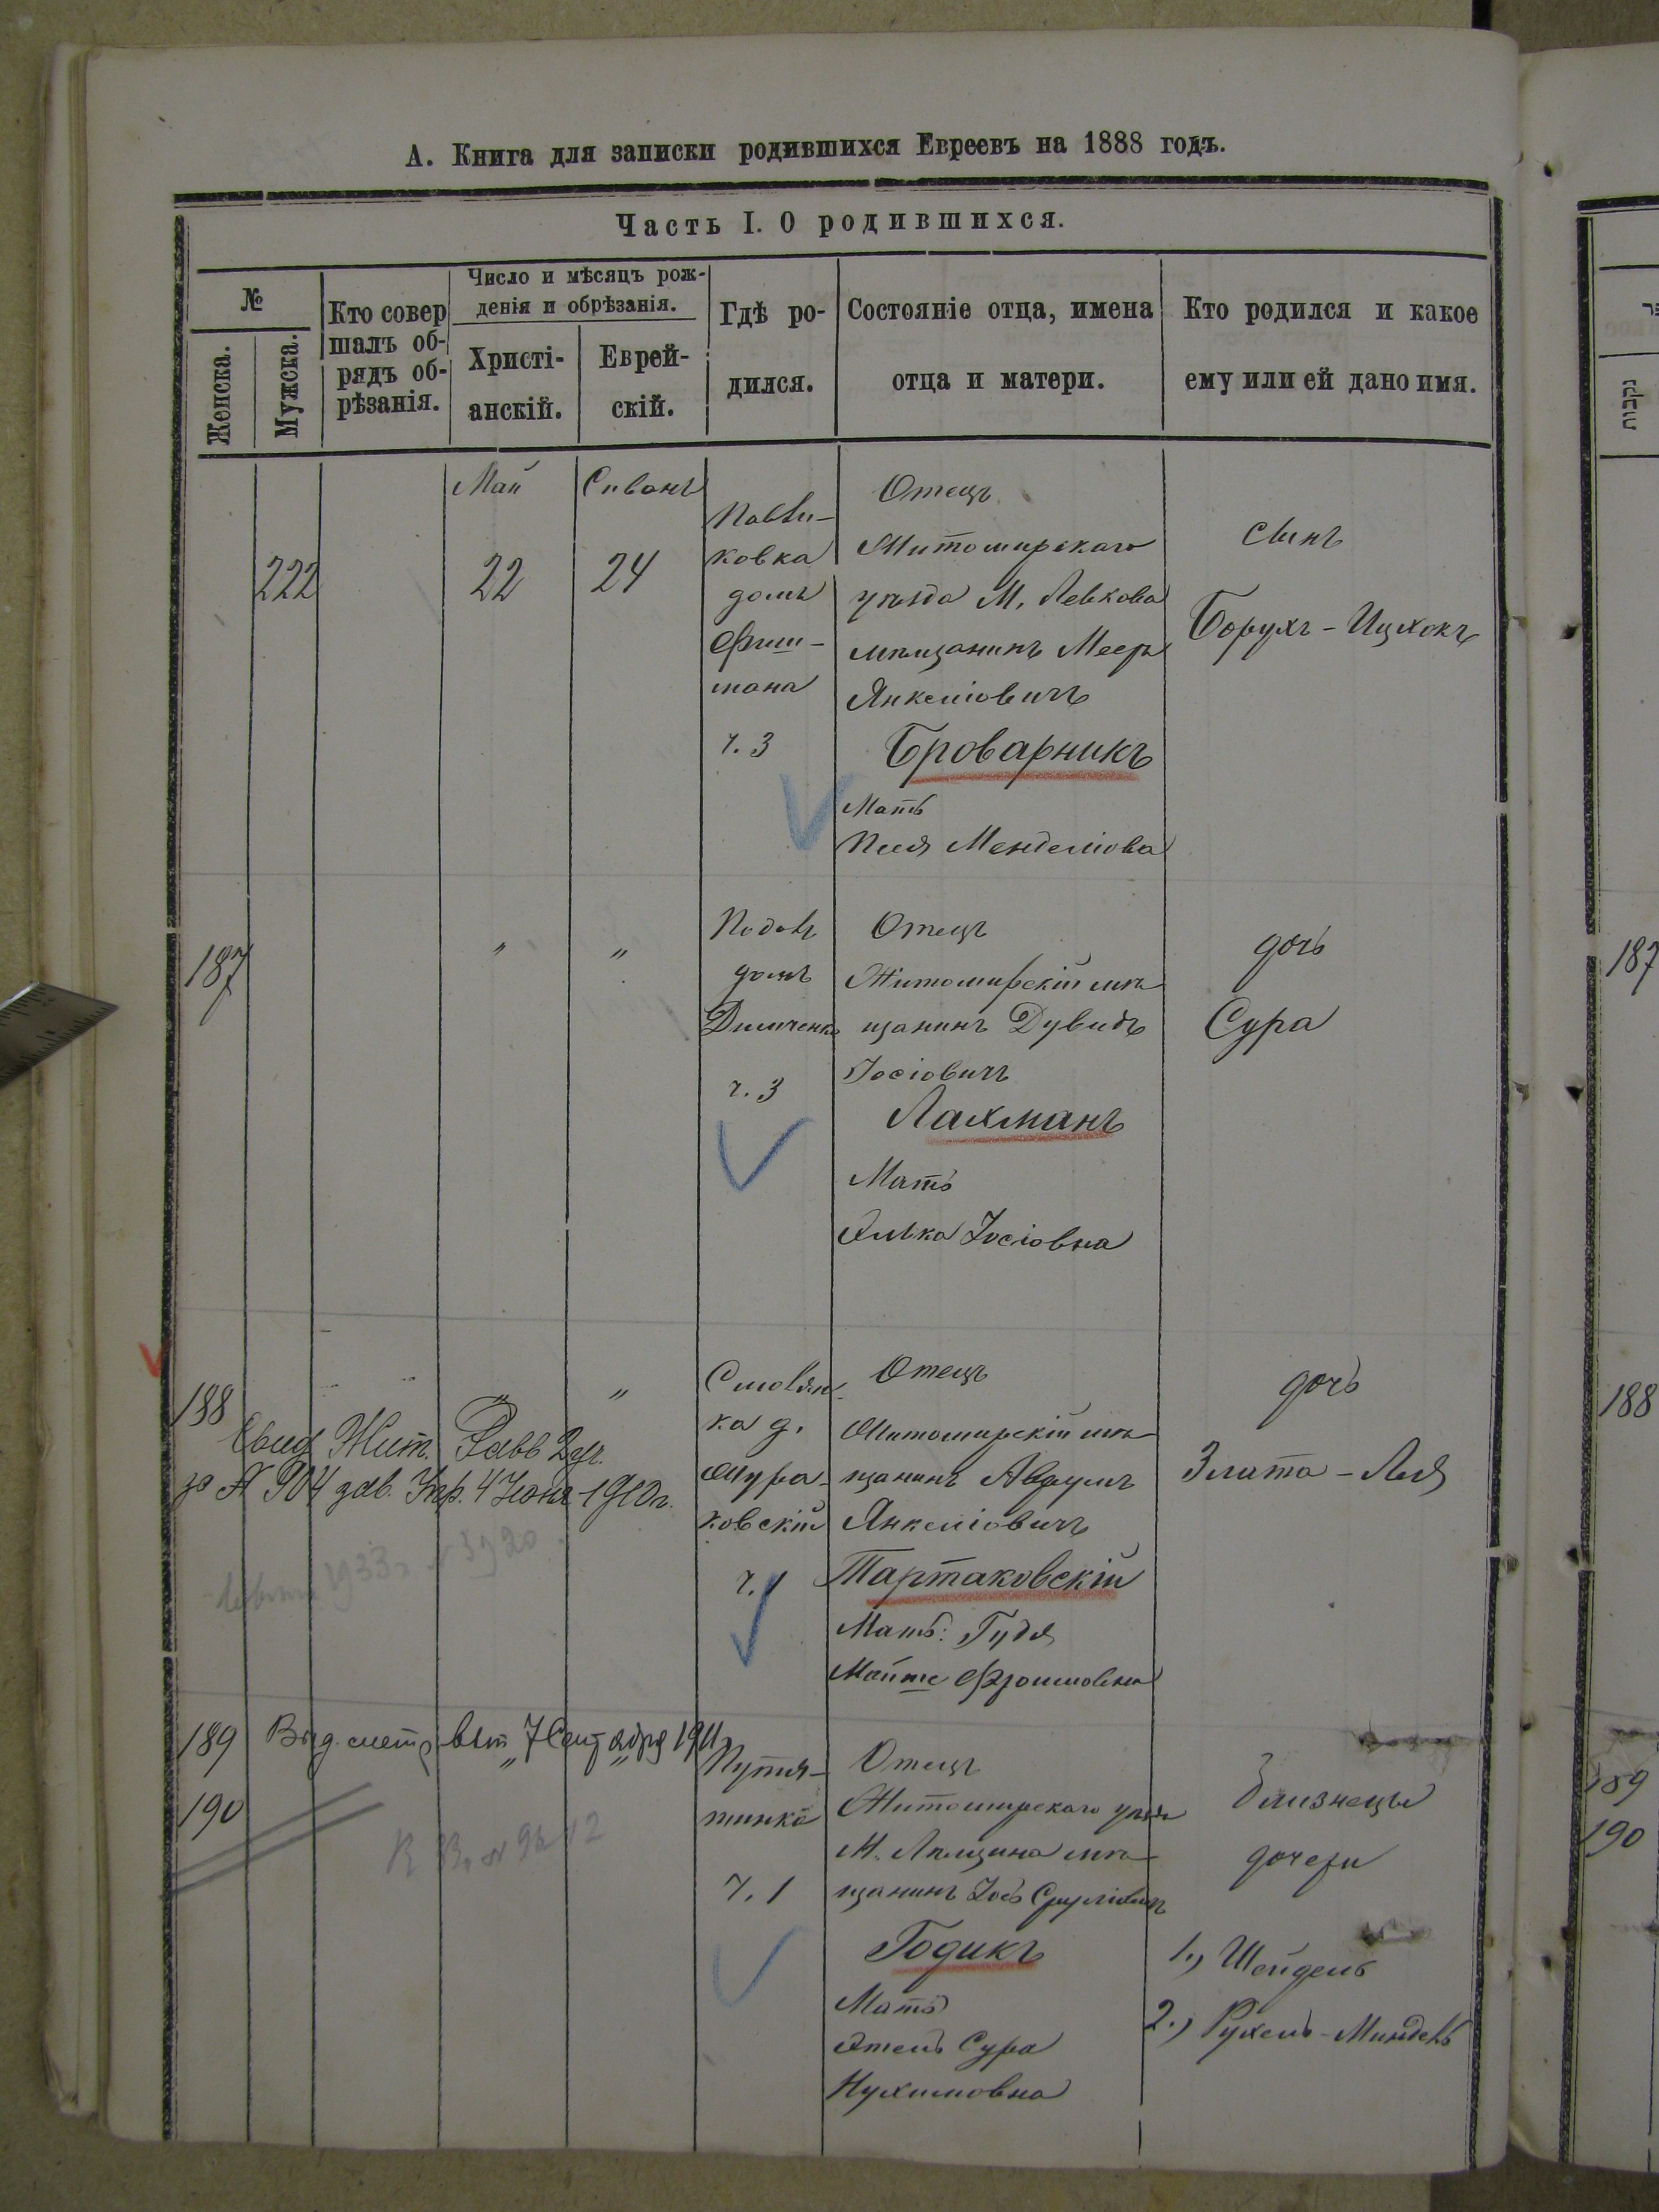 А. Книга для записки родившихся Евреевъ на 1888 годъ.
Часть I. О родившихся.
№
Женска.
Мужска.
Кто совер
шалъ об-
рядъ об-
рѣзанія.
Число и мѣсяцъ рож-
денія и обрѣзанія.
Христі-
анскій.
Еврей-
скій.
Гдѣ ро-
дился.
Состояніе отца, имена
отца и матери.
Кто родился и какое
ему или ей дано имя.
222
Май
22
Сиванъ
24
ковка
домъ
Фиш-
мана
ч. 3
Отецъ
Житомирскаго
уѣзда М. Левкова
мѣщанинъ Мееръ
Янкеліовичъ
Броварникъ
Мать
Песя Менделіова
сынъ
Борухъ-Ицхокъ
187
"
"
домъ
ч. 3
Отецъ
Житомирскій мѣ
щанинъ Дувидъ
Іосіовичъ
Лахманъ
Мать
Іосіовна
дочь
Сура
188
"
"
Свид. Жит. Равв
за № 904 4 Іюня 1910 г.
1933
ка д.
ковскій
ч. 1
Отецъ
Житомирскій мѣ
щанинъ Аврумъ
Янкеліовичъ
Тартаковскій
Мать:
Фроимовна
дочь
Злата-Лея
189
190
Выд. метр. вып. 7 Сентября 1911 г.
Путя-
тинка
ч. 1
Отецъ
Житомирскаго уѣзд
М. мѣ
щанинъ Іосъ Сруліовичъ
Годикъ
Мать
Этель Сура
Нухимовна
близнецы
дочери
1.) Шейдель
2.) Рухель-Миндель
187
188
189
190
נקבות